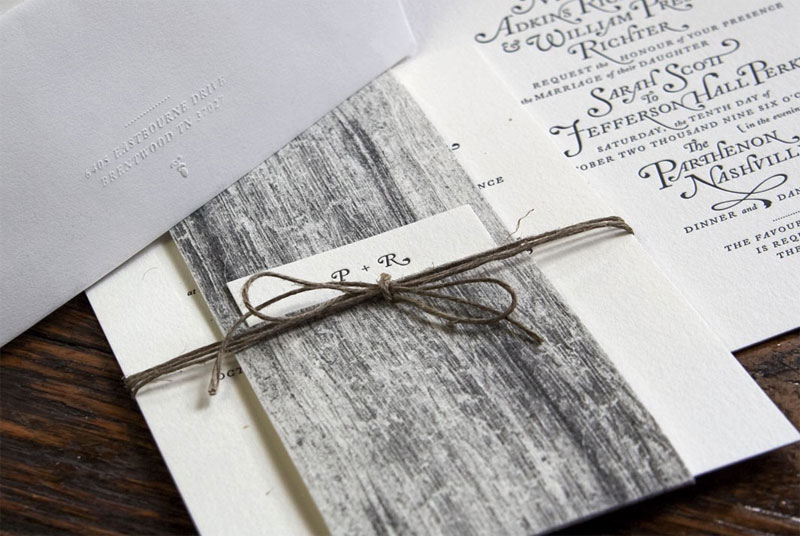 6405 EASTBOURNE DRIVE
BRENTWOOD TN 37027
P + R
NCE
at
OCT
ADKINS
& WILLIAM
RICHTER
REQUEST the HONOUR of YOUR PRESENCE
the MARRIAGE of their DAUGHTER
SARAH SCOTT
TO
JEFFERSON HALL PERK
SATURDAY, the TENTH DAY of
OBER TWO THOUSAND NINE SIX O'C
(in the evenin
The
PARTHENON
NASHVILL
DINNER and DAN
THE FAVOU
IS REQU
THE